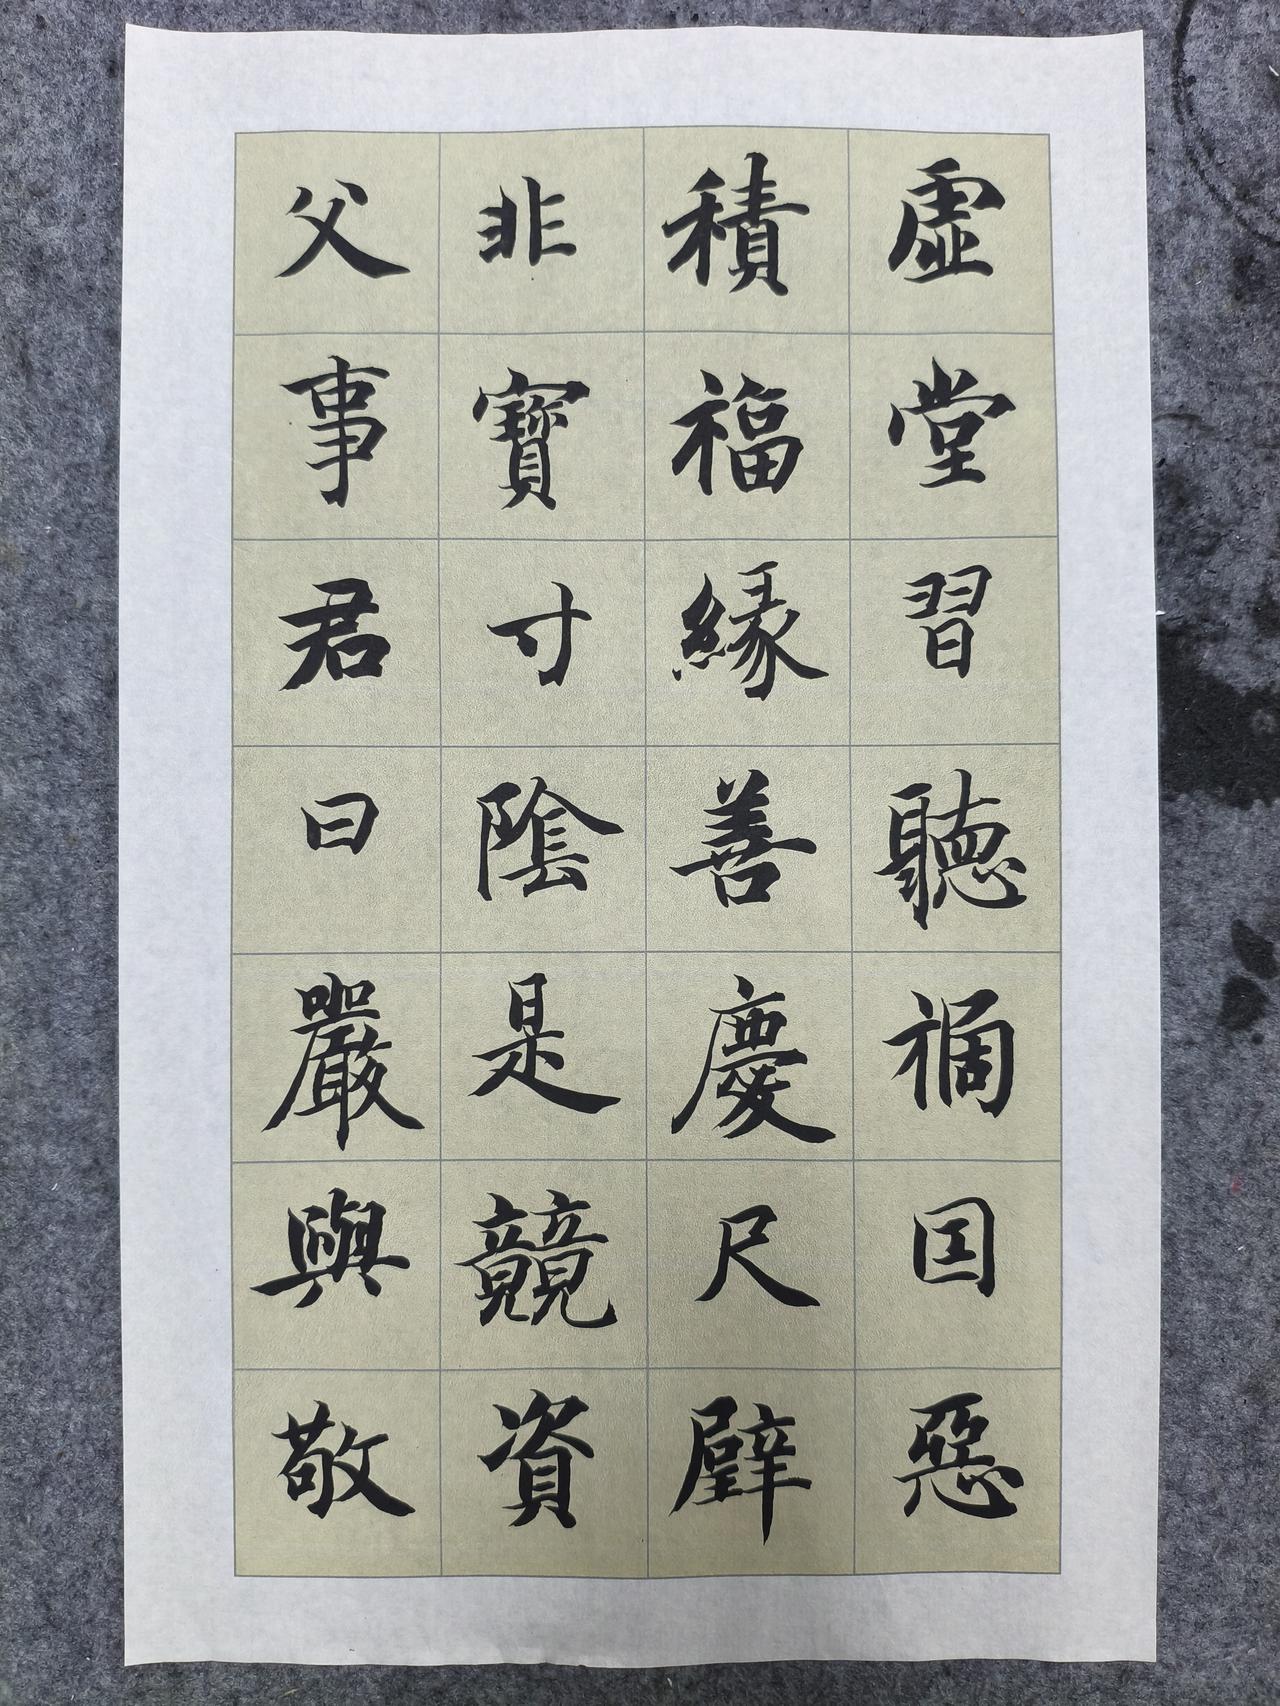 虛堂習聽禍因惡
積福緣善慶尺璧
非寶寸陰是競資
父事君曰嚴與敬